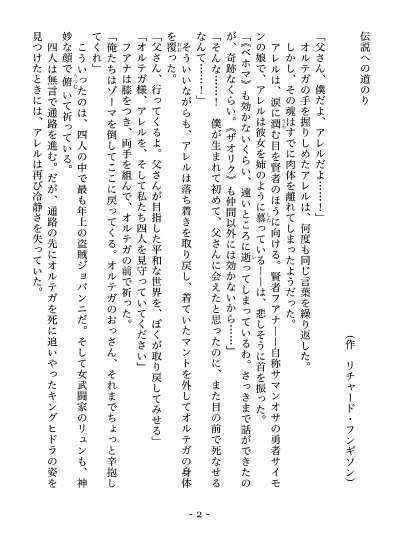 伝説への道のり
（作　リチャード・フンギソン）
「父さん、僕だよ、アレルだよ………！」
オルテガの手を握りしめたアレルは、何度も同じ言葉を繰り返した。
しかし、その魂はすでに肉体を離れてしまったようだった。
アレルは、涙に潤む目を賢者のほうに向ける。賢者フアナ――自称サマンオサの勇者サイモ
ンの娘で、アレルは彼女を姉のように慕っている――は、悲しそうに首を振った。
「《ベホマ》も効かないくらい、遠いところに逝ってしまっているわ。さっきまで話ができたの
が、奇跡なくらい。《ザオリク》も仲間以外には効かないから……」
「そんな……！　僕が生まれて初めて、父さんに会えたと思ったのに、また目の前で死なせる
なんて………！」
そういいながらも、アレルは落ち着きを取り戻し、着ていたマントを外してオルテガの身体
を覆った。
「父さん、行ってくるよ。父さんが目指した平和な世界を、ぼくが取り戻してみせる」
「オルテガ様、アレルを、そして私たち四人を見守っていてください」
フアナは膝をつき、両手を組んで、オルテガの前で祈った。
「俺たちはゾーマを倒してここに戻ってくる。オルテガのおっさん、それまでちょっと辛抱し
てくれ」
こういったのは、四人の中で最も年上の盗賊ジョバンニだ。そして女武闘家のリュンも、神
妙な顔で俯いて祈っている。
四人は無言で通路を進む。だが、通路の先にオルテガを死に追いやったキングヒドラの姿を
見つけたときには、アレルは再び冷静さを失っていた。
- 2 -